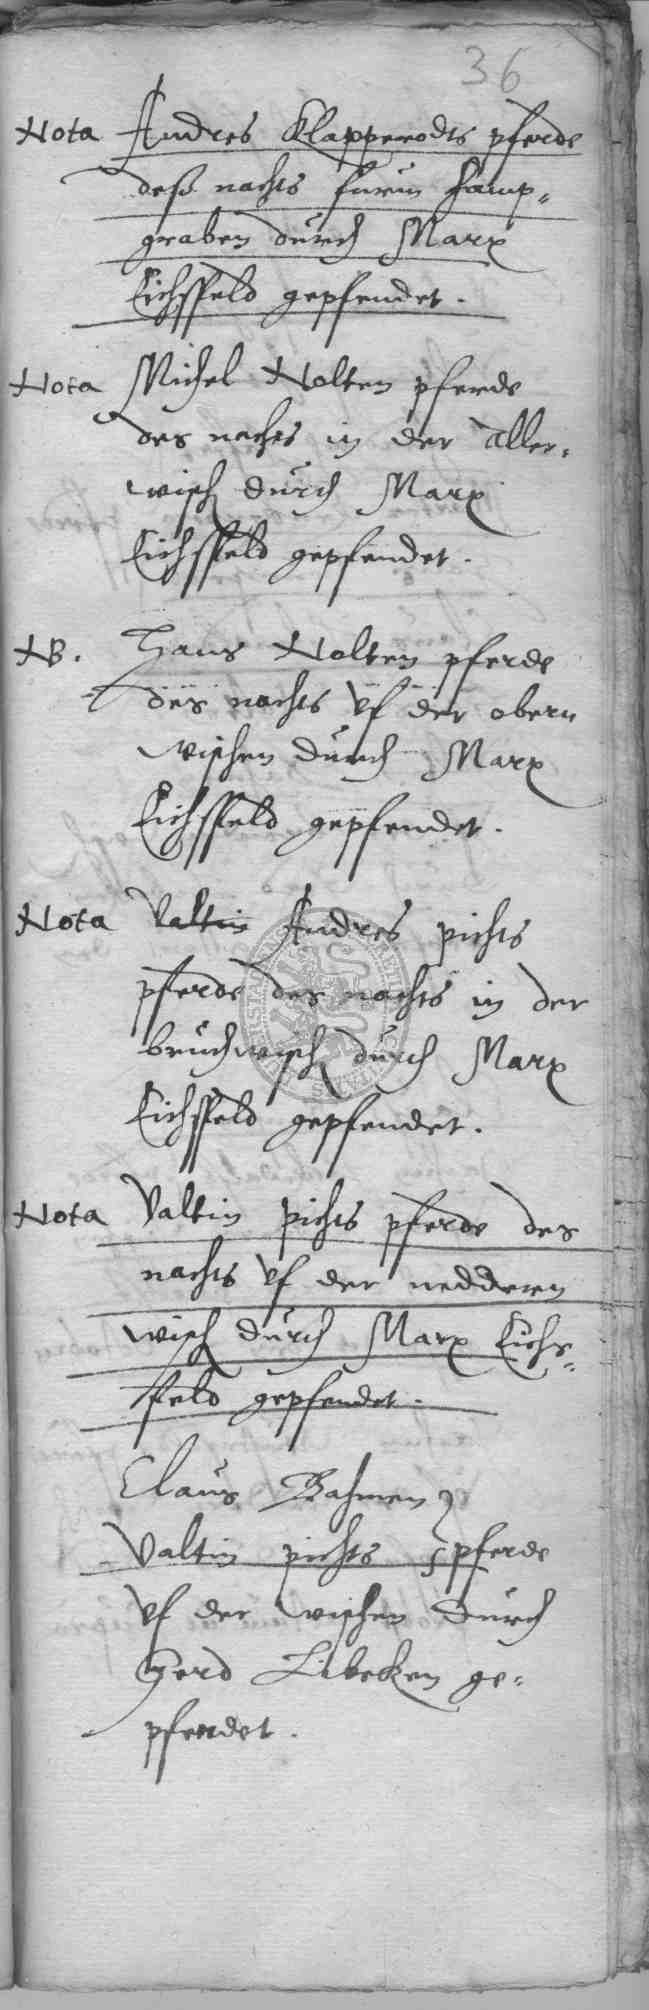 36
Nota Andres Klapperodts pferde
deß nachts furm hamp-
graben durch Marx
Eichsfeld gepfendet.
Nota Michel Nolten pferde
des nachts in der Aller-
wisch durch Marx
Eichsfeld gepfendet.
NB. Hans Nolten pferde
des nachts uf der obern
wischen durch Marx
Eichsfeld gepfendet.
Nota Valtin Andres pichts
pferde des nachts in der
bruchwisch durch Marx
Eichsfeld gepfendet.
Nota Valtin pichts pferde des
nachts uf der nedderen
wisch durch Marx Eichs-
feld gepfendet.
Claus Bahmen
Valtin pichts pferde
uf der wischen durch
Gerd Libeken ge-
pfendet.